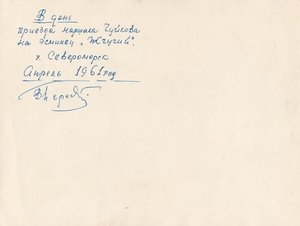 В день
приезда маршала Чуйкова
на эсминец „Жгучий".
г. Североморск
Апрель 1961 год